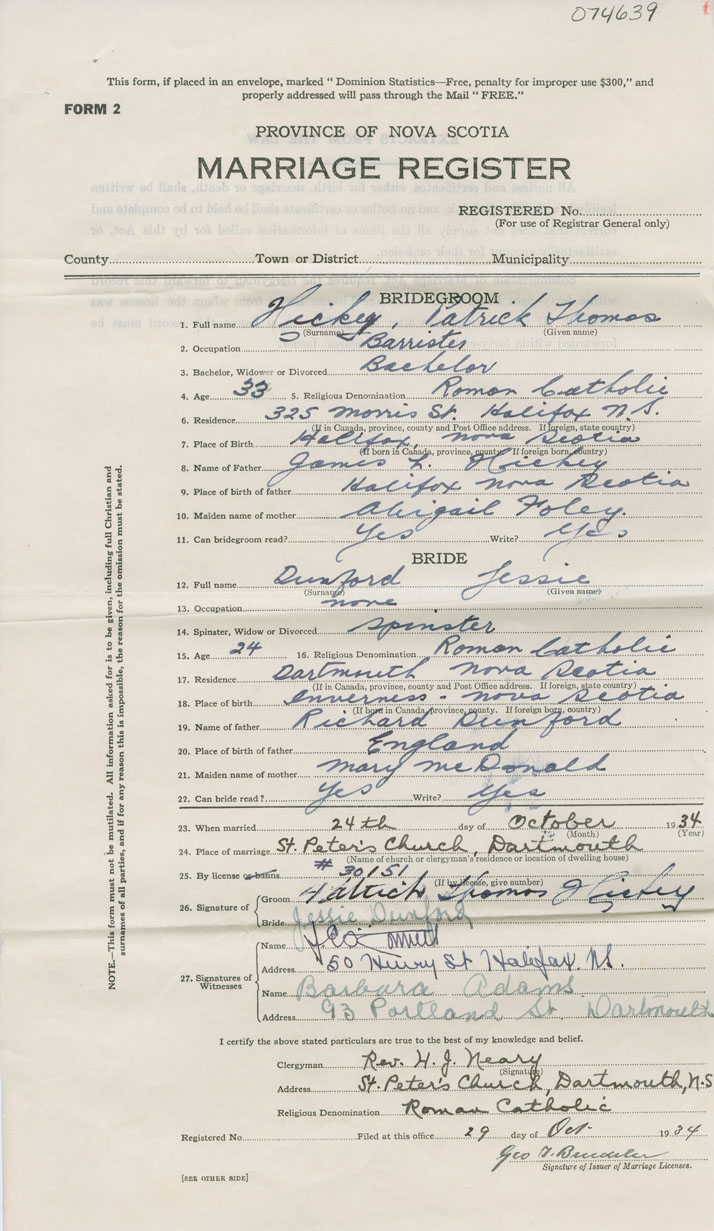 074639
This form, if placed in an envelope, marked " Dominion Statistics—Free, penalty for improper use $300," and
properly addressed will pass through the Mail " FREE."
FORM 2
PROVINCE OF NOVA SCOTIA
MARRIAGE REGISTER
REGISTERED No.
(For use of Registrar General only)
County Town or District Municipality
BRIDEGROOM
1. Full name Hickey, Patrick Thomas
(Surname) (Given name)
2. Occupation Barrister
3. Bachelor, Widower or Divorced Bachelor
4. Age 33 5. Religious Denomination Roman Catholic
6. Residence 325 Morris St. Halifax N.S.
(If in Canada, province, county and Post Office address. If foreign, state country)
7. Place of Birth Halifax, Nova Scotia
(If born in Canada, province, county. If foreign born, country)
8. Name of Father James L. Hickey
9. Place of birth of father Halifax Nova Scotia
10. Maiden name of mother Abigail Foley.
11. Can bridegroom read? Yes Write? Yes
BRIDE
12. Full name Dunford Jessie
(Surname) (Given name)
13. Occupation none
14. Spinster, Widow or Divorced Spinster
15. Age 24 16. Religious Denomination Roman Catholic
17. Residence Dartmouth Nova Scotia
(If in Canada, province, county and Post Office address. If foreign, state country)
18. Place of birth Inverness - Nova Scotia
(If born in Canada, province, county. If foreign born, country)
19. Name of father Richard Dunford
20. Place of birth of father England
21. Maiden name of mother Mary McDonald
22. Can bride read? Yes Write? Yes
23. When married 24th day of October 1934
(Month) (Year)
24. Place of marriage St. Peter's Church, Dartmouth
(Name of church or clergyman's residence or location of dwelling house)
25. By license or banns. # 30151
(If by license, give number)
26. Signature of Groom Patrick Thomas Hickey
Bride Jessie Dunford
27. Signatures of Witnesses
Name
Address 50 Henry St Halifax. N.S.
Name Barbara Adams
Address 93 Portland St. Dartmouth
NOTE.—This form must not be mutilated. All information asked for is to be given, including full Christian and
surnames of all parties, and if for any reason this is impossible, the reason for the omission must be stated.
I certify the above stated particulars are true to the best of my knowledge and belief.
Clergyman Rev. H. J. Neary
(Signature)
Address St. Peter's Church, Dartmouth, N.S
Religious Denomination Roman Catholic
Registered No. Filed at this office 29 day of Oct. 1934
Geo
Signature of Issuer of Marriage Licenses.
[SEE OTHER SIDE]